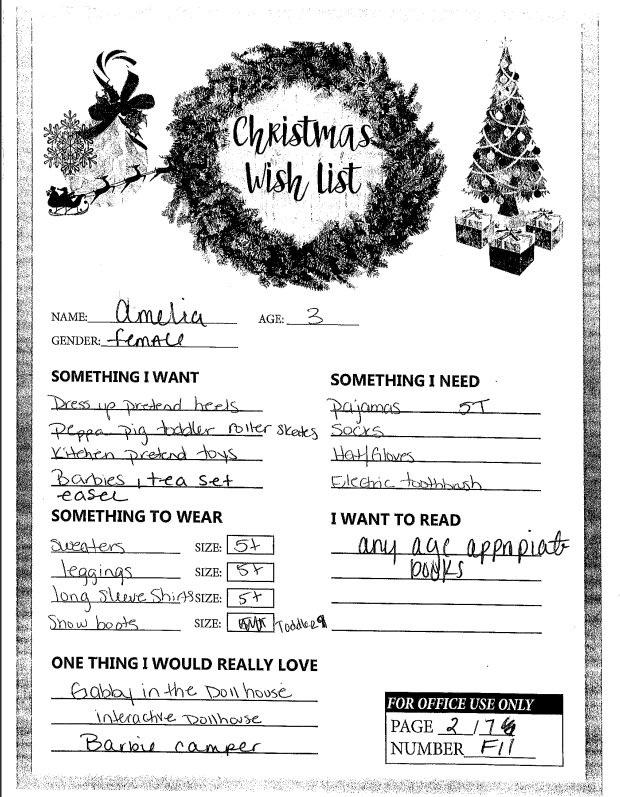 Christmas
Wish List
NAME: Amelia AGE: 3
GENDER: female
SOMETHING I WANT
Dress up pretend heels
Peppa pig toddler roller skates
Kitchen pretend toys
Barbies, tea set
easel
SOMETHING I NEED
pajamas 5T
Socks
Hat/Gloves
Electric toothbrush
SOMETHING TO WEAR
sweaters SIZE: 5t
leggings SIZE: 5t
long sleeve Shirts SIZE: 5t
Snow boots SIZE: Toddler 9
I WANT TO READ
any age appropiate
books
ONE THING I WOULD REALLY LOVE
Gabby in the Dollhouse
interactive Dollhouse
Barbie camper
FOR OFFICE USE ONLY
PAGE 2 / 7
NUMBER F11